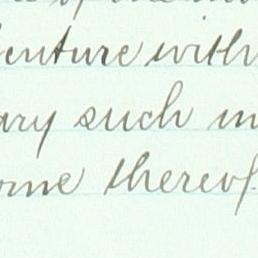 enture with
ary such in
ome thereof.